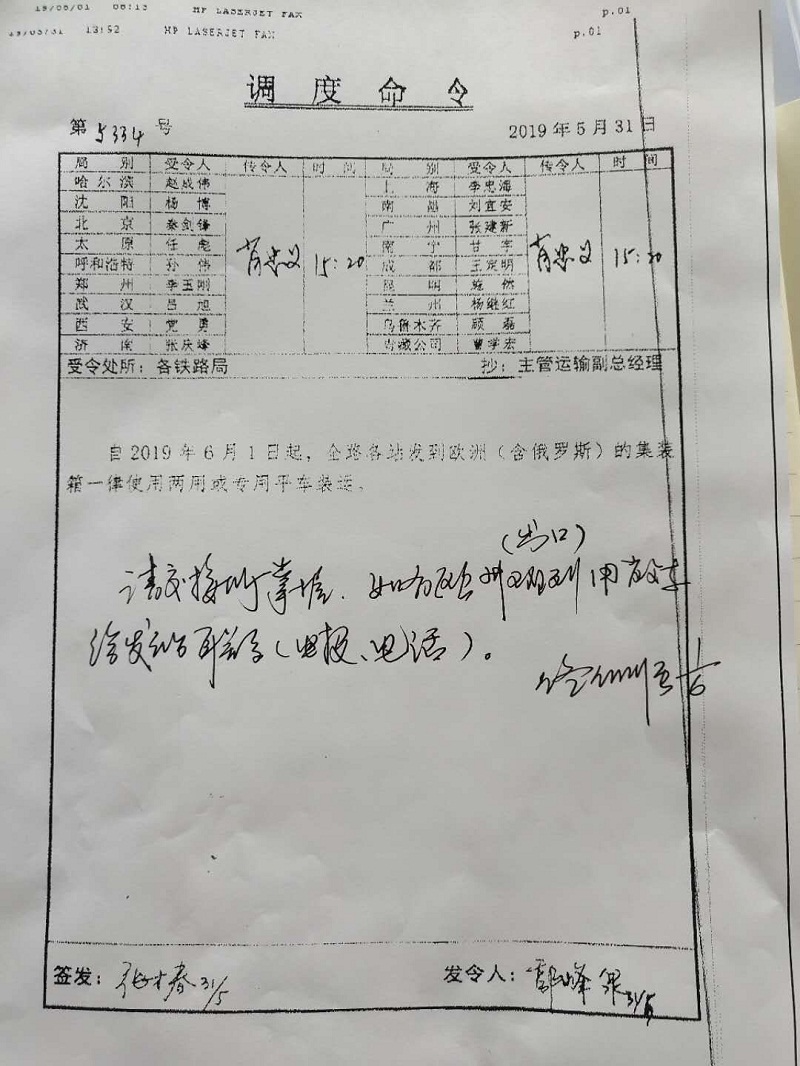 19/05/31 13:52 HP LASERJET FAX p.01
HP LASERJET FAX p.01
调度命令
第5334号 2019年5月31日
局别 受令人 传令人 时间 局别 受令人 传令人 时间
哈尔滨 赵成伟 上海 李忠海
沈阳 杨博 南昌 刘宜安
北京 秦剑锋 广州 张建新
太原 任彪 南宁 甘宇
呼和浩特 孙伟 15:20 成都 王定明 15:20
郑州 李玉刚 昆明 然
武汉 吕旭 兰州 杨继红
西安 党勇 乌鲁木齐 顾磊
济南 张庆峰 青藏公司 曹学宏
受令处所：各铁路局 抄：主管运输副总经理
自2019年6月1日起，全路各站发到欧洲（含俄罗斯）的集装
箱一律使用两用或专用平车装运。
（出口）
请 掌握. 如有 用敞车
给发站 （电报、电话）。
签发： 31/5 发令人： 31/5